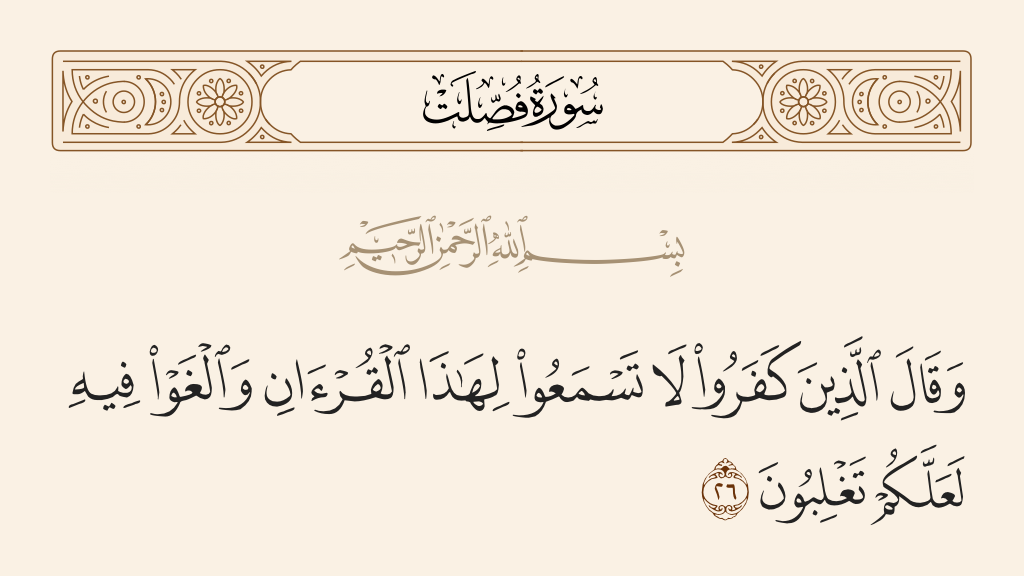 سُورَةُ فُصِّلَتْ
بِسْمِ ٱللَّهِ ٱلرَّحْمَٰنِ ٱلرَّحِيمِ
وَقَالَ ٱلَّذِينَ كَفَرُوا۟ لَا تَسْمَعُوا۟ لِهَٰذَا ٱلْقُرْءَانِ وَٱلْغَوْا۟ فِيهِ
لَعَلَّكُمْ تَغْلِبُونَ ٢٦